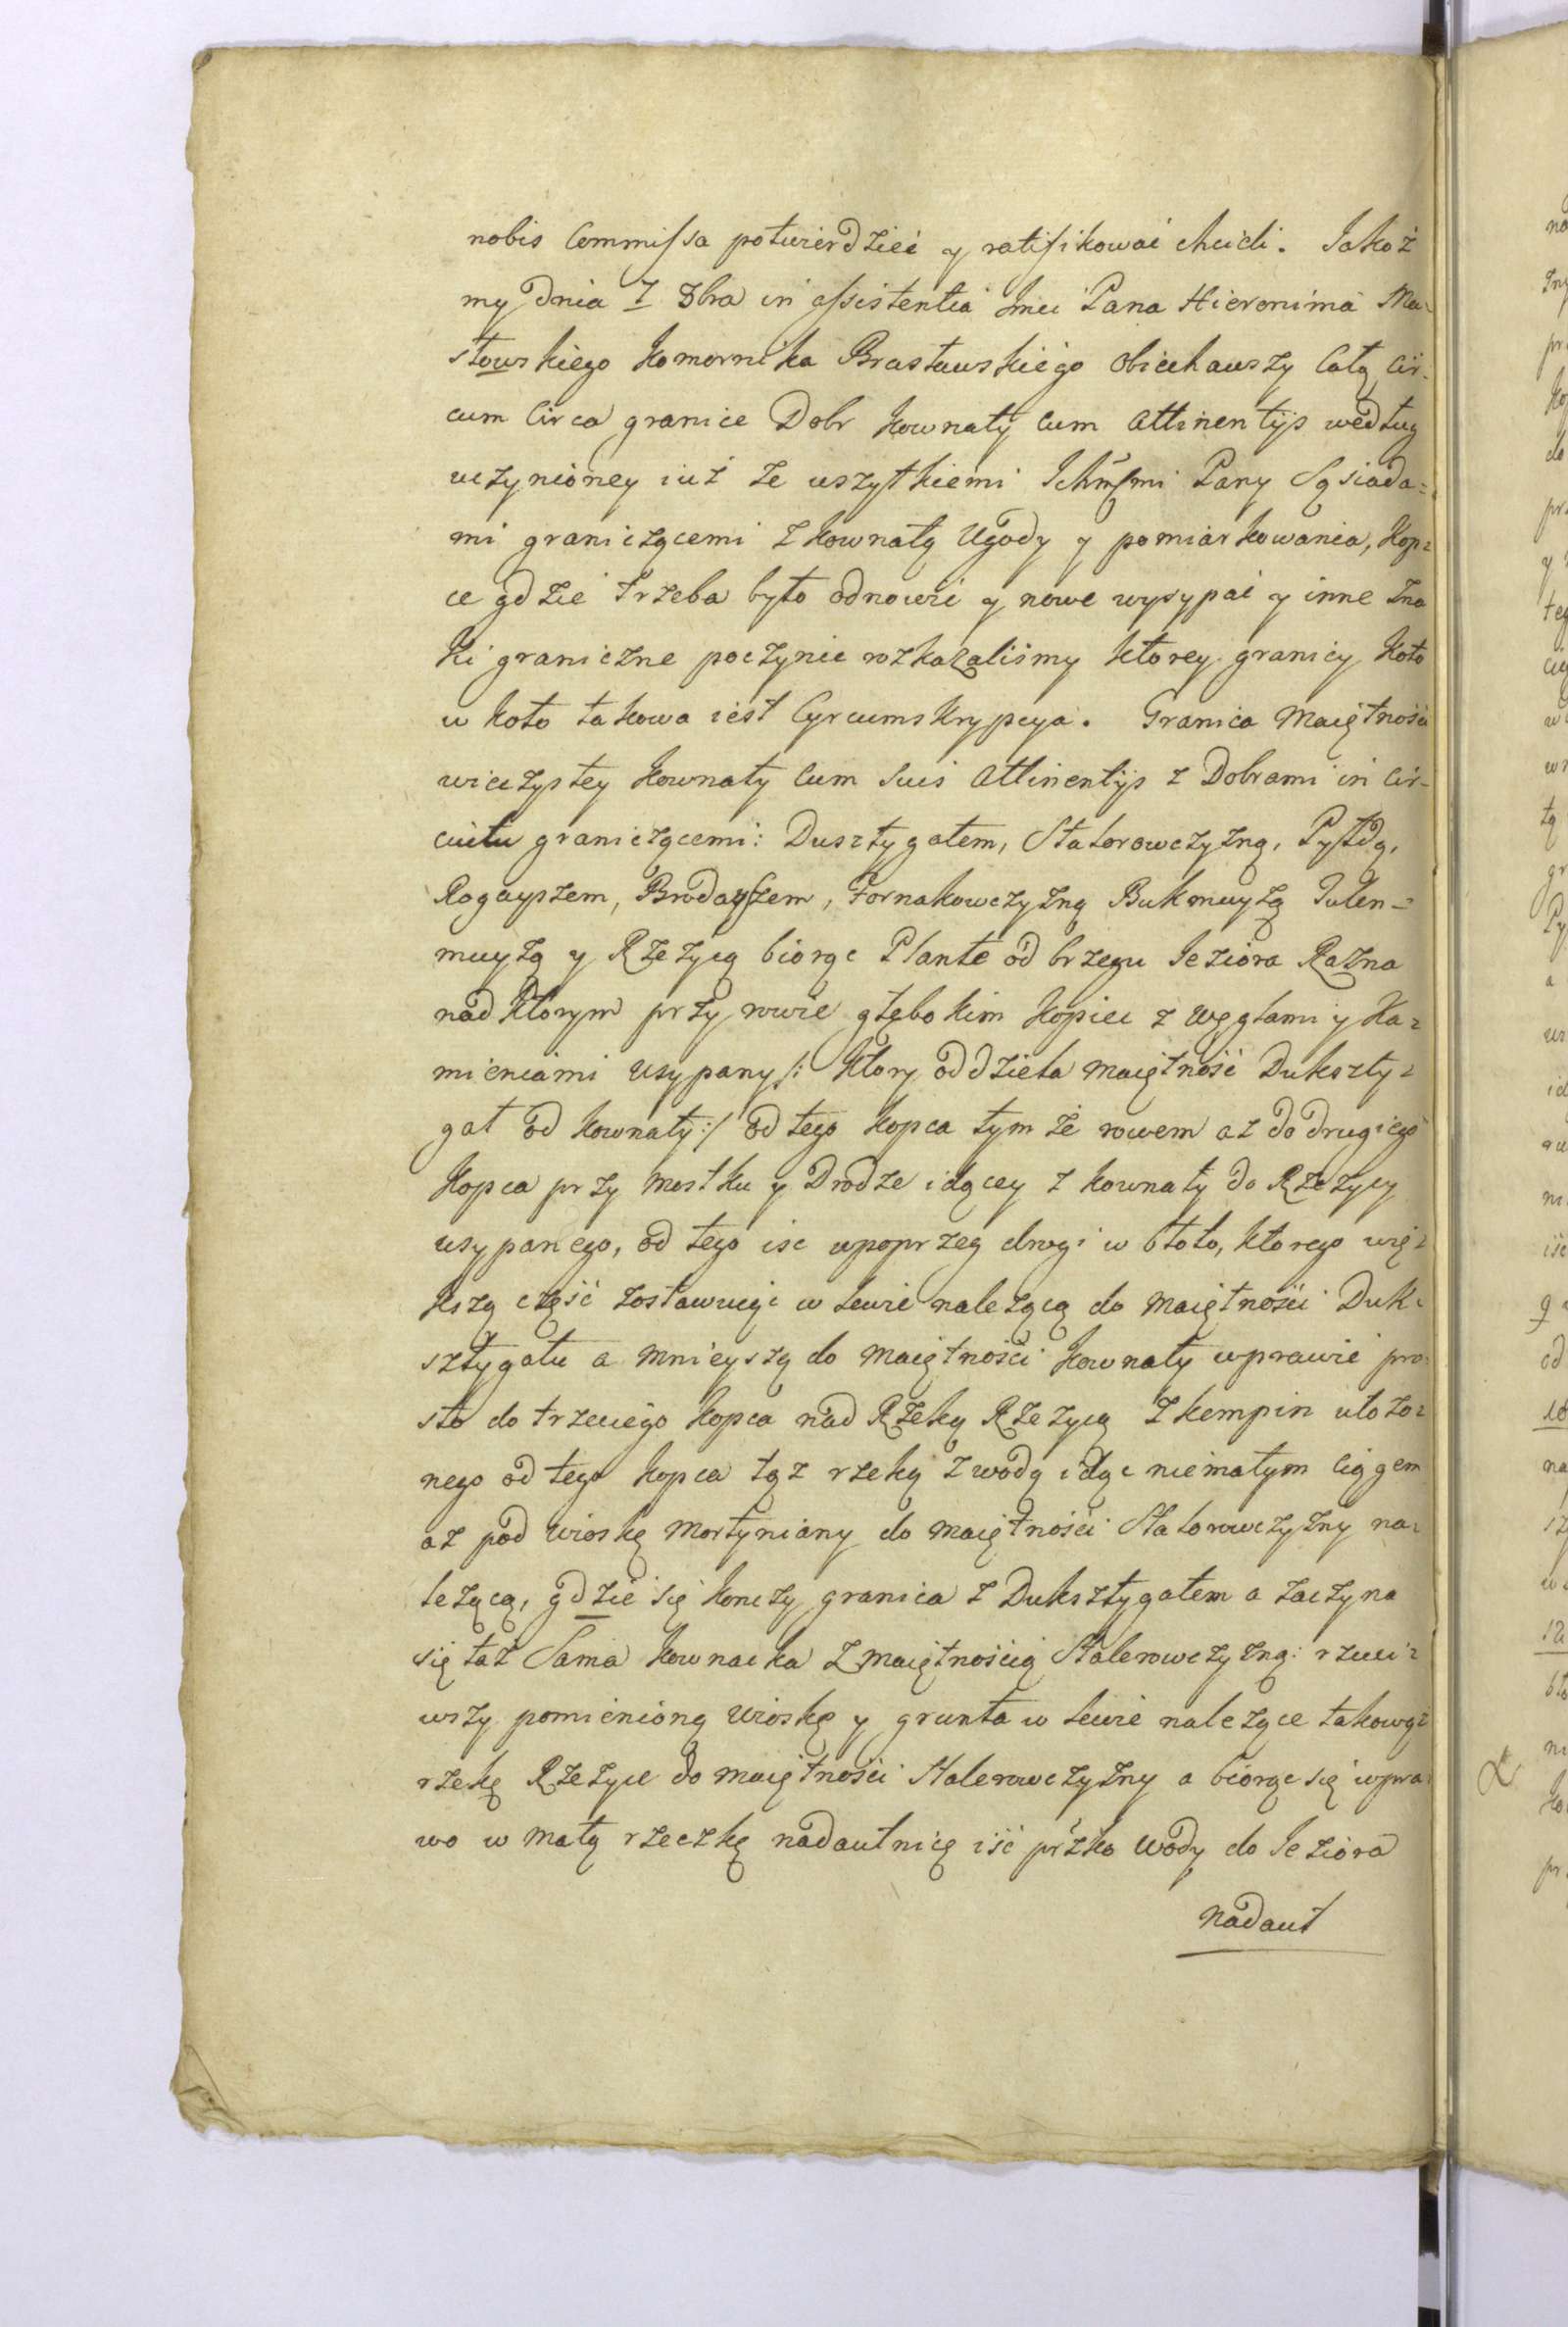 nobis Commissa potwierdzieć y ratifikować chcieli. Jakoż
my dnia 7 8bra in assistentia Jmci Pana Hieronima Ma-
słowskiego Komornika Brasławskiego obiechawszy Całą Cir-
cum Circa granice Dobr Kownaty Cum Attinentijs według
uczynioney iuż ze wszytkiemi Ichmćmi Pany Sąsiada=
mi graniczącemi z Kownatą Ugody y pomiarkowania, Kop=
ce gdzie trzeba było odnowić y nowe wysypać y inne Zna
ki graniczne poczynić rozkazaliśmy ktorey granicy Koło
w koło takowa iest Cyrcumskrypcya. Granica Maiętnośći
wieczystey Kownaty Cum Suis Attinentijs z Dobrami in Cir-
cuitu graniczącemi: Dusztygałem, Stalerowczyzną, Pyłzdą,
Rogayszem, Brodayszem, Fornakowczyzną Bukmuyżą Julen=
muyżą y Rzeżycą biorąc Plante od brzegu Ieziora Razna
nad ktorym przy rowie głębokim Kopiec z Węglami y Ka=
mieniami usypany /: Ktory oddziela maiętność Dukszty=
gał od Kownaty :/ od tego Kopca tym że rowem aż do drugiego
Kopca przy Mostku y Drodze idącey z Kownaty do Rzeżycy
usypanego, od tego isc wpoprzeg drogi w błoto, ktorego wię=
kszą część zostawuiąc w lewie należącą do maiętnośći Duk=
sztygału a mnieyszą do maiętnośći Kownaty wprawie pro=
sto do trzeciego Kopca nad Rzeką Rzeżycą z kempin ułożo=
nego od tego Kopca tąż rzeką z wodą idąc niemałym ciągem
aż pod wioskę Mortyniany do maiętnośći Stalerowczyzny na=
leżącą, gdzie się konczy granica z Duksztygałem a zaczyna
się taż Sama Kownacka z maiętnością Stalerowczyzną: rzuci=
wszy pomienioną wioskę y grunta w lewie należące takową=
rzekę Rzeżyce do maiętnośći Stalerowczyzny a biorąc się wpra=
wo w małą rzeczkę nadautnicę iść przko wody do Ieziora
Nadaut